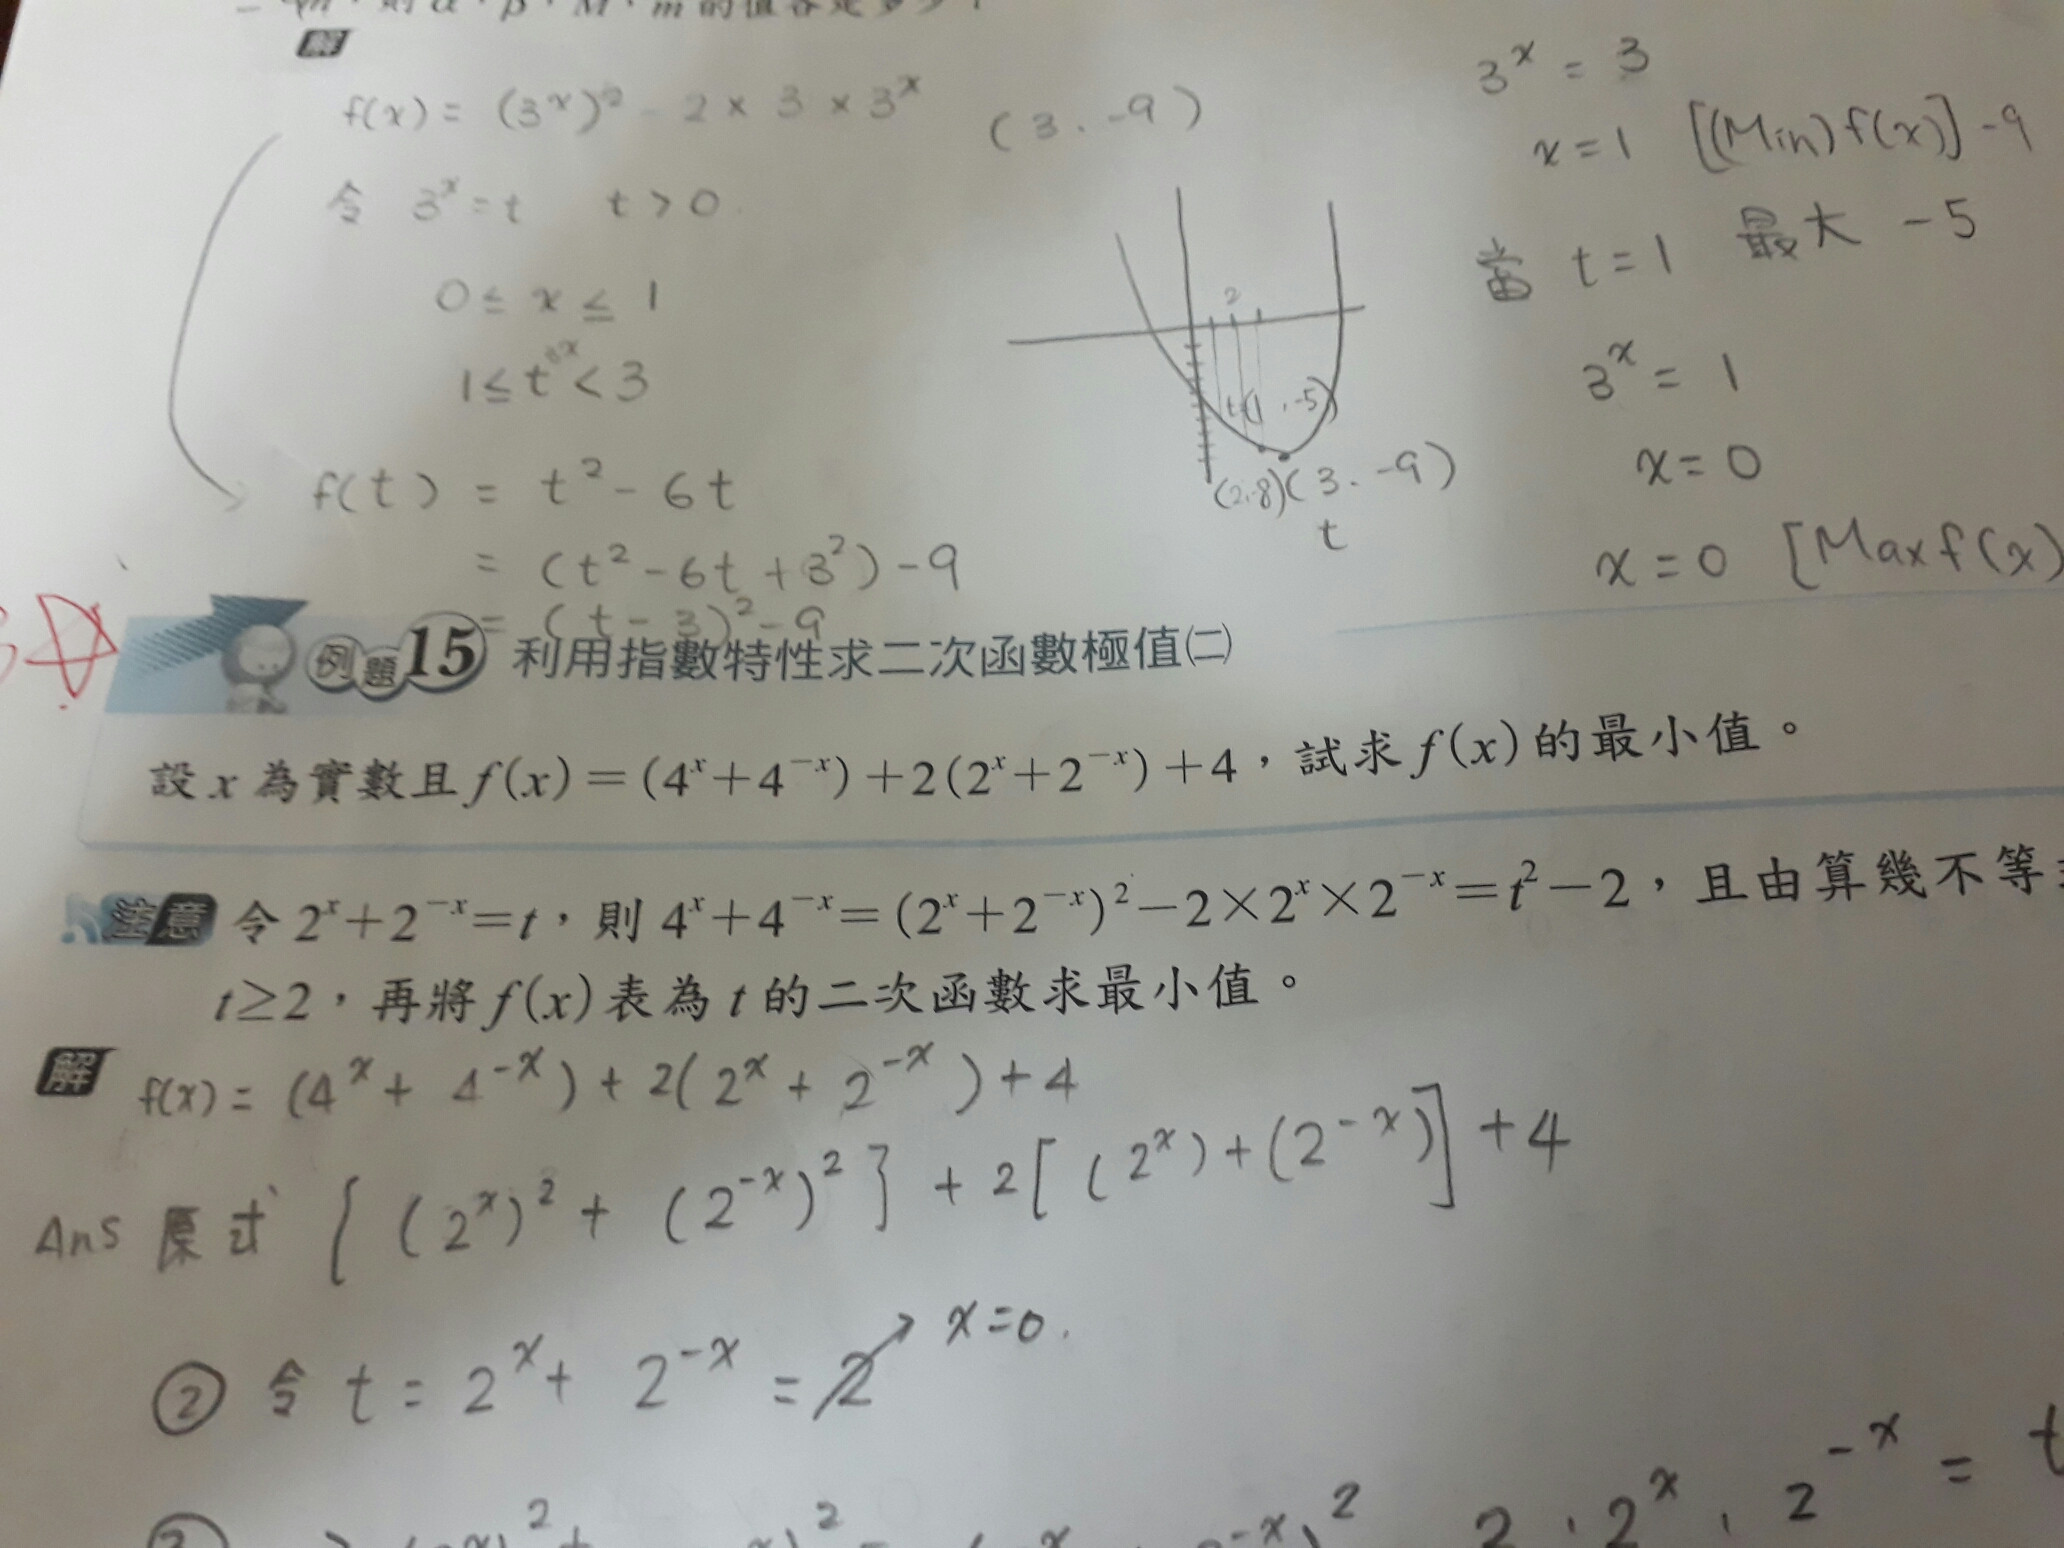 則α、β、M、m的值各是多少?
解
f(x) = (3^x)^2 - 2 × 3 × 3^x
(3、-9)
令 3^x = t t > 0
0 ≤ x ≤ 1
1 ≤ t^3^x < 3
f(t) = t^2 - 6t
= (t^2 - 6t + 3^2) - 9
= (t - 3)^2 - 9
2
t(1、-5)
(2,-8)(3、-9)
t
3^x = 3
x = 1 [(Min) f(x)] -9
當 t = 1 最大 -5
3^x = 1
x = 0
x = 0 [Max f(x)
例題15 利用指數特性求二次函數極值㈡
設 x 為實數且 f(x)=(4^x+4^-x)+2(2^x+2^-x)+4,試求 f(x) 的最小值。
注意 令 2^x+2^-x=t,則 4^x+4^-x=(2^x+2^-x)^2-2×2^x×2^-x=t^2-2,且由算幾不等
t≥2,再將 f(x) 表為 t 的二次函數求最小值。
解 f(x) = (4^x + 4^-x) + 2(2^x + 2^-x) + 4
Ans 原式 { (2^x)^2 + (2^-x)^2 } + 2[ (2^x) + (2^-x)] + 4
② 令 t = 2^x + 2^-x = 2 x = 0.
2 · 2^x · 2^-x = t